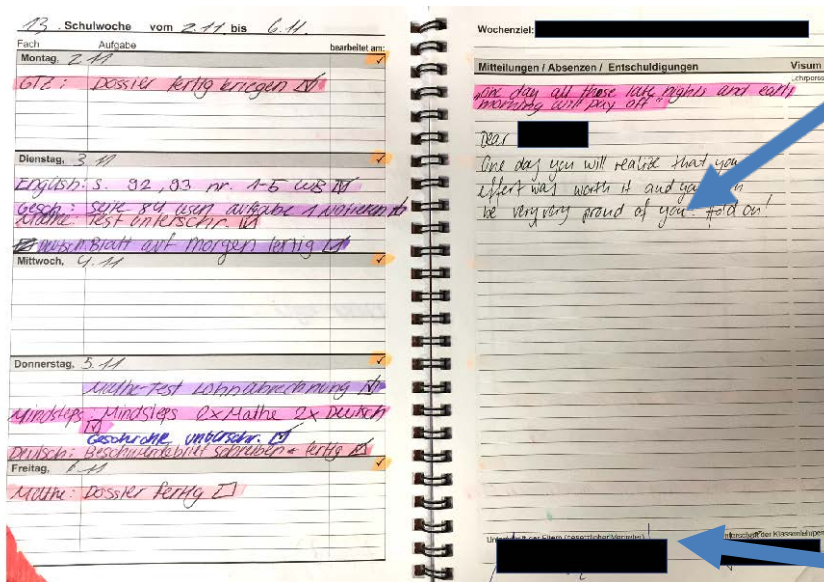 13. Schulwoche vom 2.11. bis 6.11.
Fach Aufgabe bearbeitet am:
Montag, 2.11
GTZ: Dossier fertig kriegen
Dienstag, 3.11
English: S. 92, 93 nr. 1-5 WB
Gesch: Seite 84 lesen aufgabe 1 notieren
Mathe: Test unterschr.
Deutsch: Blatt auf morgen fertig
Mittwoch, 4.11
Donnerstag, 5.11
Mathe-Test Lohnabrechnung
Mindsteps: Mindsteps 2x Mathe 2x Deutsch
Geschichte unterschr.
Deutsch: Beschwerdebrief schreiben + fertig
Freitag, 6.11
Mathe: Dossier fertig
Wochenziel:
Mitteilungen / Absenzen / Entschuldigungen Visum
"One day all those late nights and early
morning will pay off"
Dear
One day you will realise that you
effort was worth it and you
be very very proud of you. Hold on!